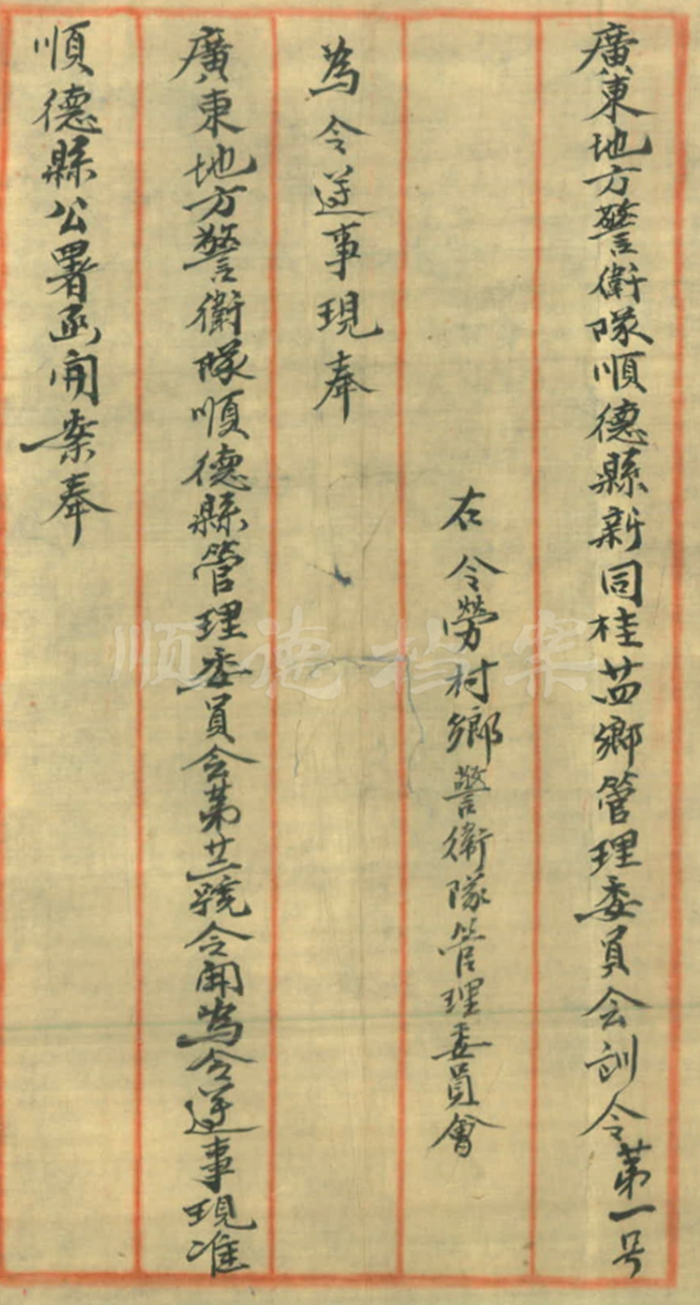 廣東地方警衛隊順德縣新同桂茁鄉管理委員会訓令第一号
右令勞村鄉警衛隊管理委員會
為令遵事現奉
廣東地方警衛隊順德縣管理委員会第廿一號令開為令遵事現准
順德縣公署函開案奉
順德档案